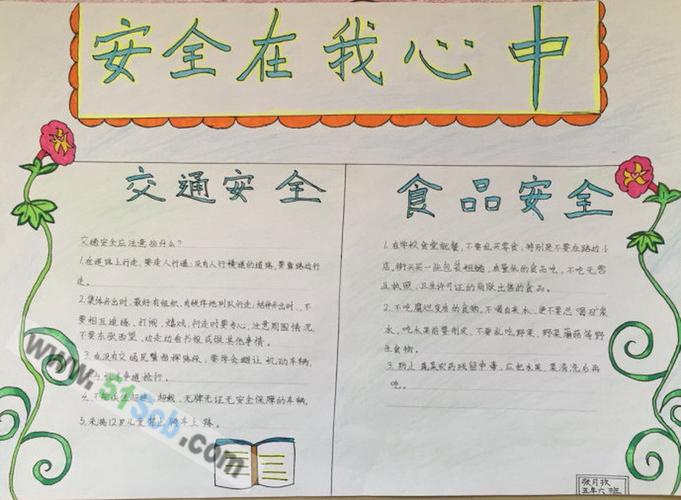 安全在我心中
交通安全
交通安全应注意些什么?
1.在道路上行走,要走人行道;没有人行横道的道路,要靠路边行
走。
2.集体外出时,最好有组织、有秩序地列队行走;结伴外出时、不
要相互追逐、打闹、嬉戏;行走时要专心,注意周围情况,
不要东张西望、边走边看书报或做其他事情。
3.在没有交通民警指挥路段,要学会避让机动车辆,
车道抢行。
4.不 超载、无牌无证无安全保障的车辆。
5.未满12岁儿 车上路。
食品安全
1.在学校食堂就餐,不要乱买零食;特别是不要在路边小
店,街头买一些包装粗糙,质量低的食品吃,不吃无营
业执照,卫生许可证的商贩出售的食品。
2.不吃腐烂变质的食物,不喝自来水、更不要怂"喝河"
水、吃水果后要削皮、不要乱吃野果、野菜蘑菇等野
生食物。
3.防止蔬菜农药残留中毒,应把水果、菜清洗后再
吃。
张月玫
五年六班
www.515cb.com